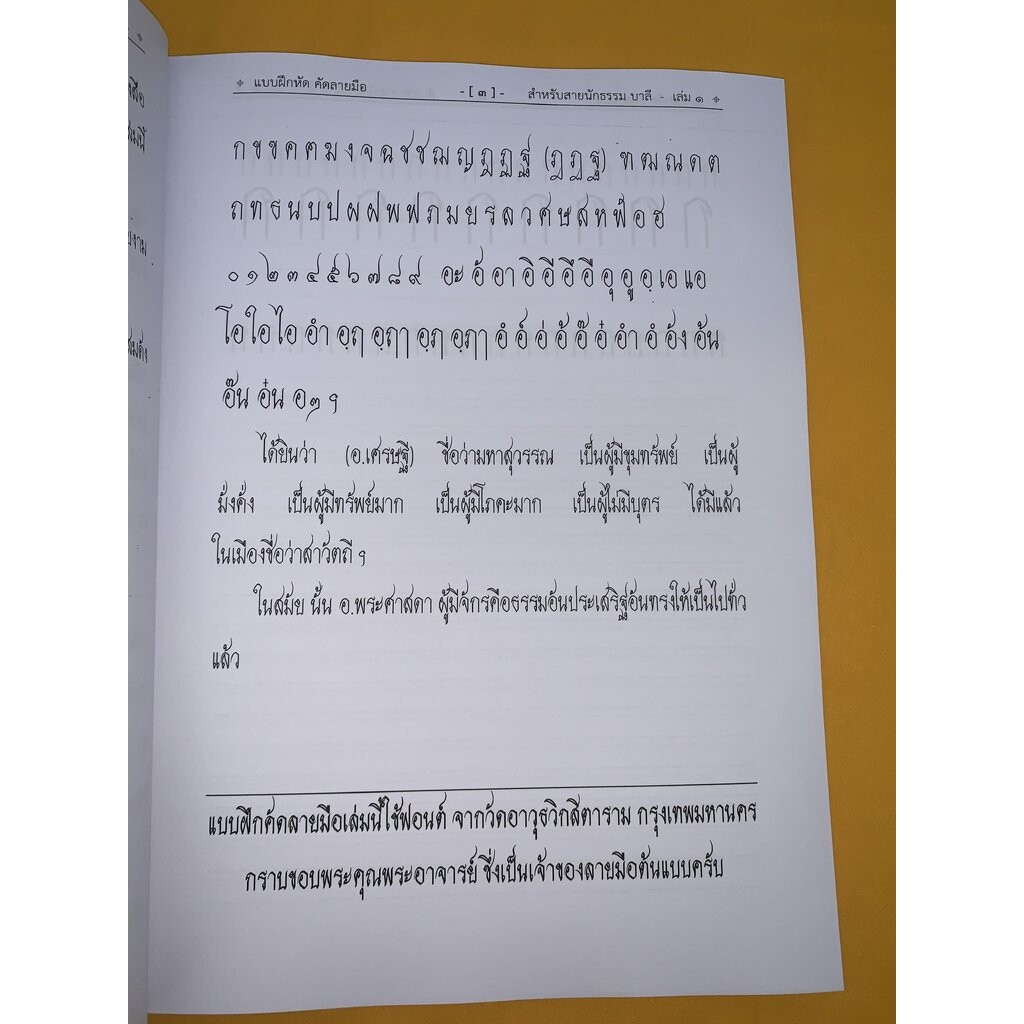 แบบฝึกหัด คัดลายมือ -[ ๓ ]- สำหรับสายนักธรรม บาลี - เล่ม ๑
ก ข ฃ ค ฅ ฆ ง จ ฉ ช ซ ฌ ญ ฎ ฏ ฐ (ฎ ฏ ฐ) ฑ ฒ ณ ด ต
ถ ท ธ น บ ป ผ ฝ พ ฟ ภ ม ย ร ล ว ศ ษ ส ห ฬ อ ฮ
๐ ๑ ๒ ๓ ๔ ๕ ๖ ๗ ๘ ๙ อะ อั อา อิ อี อึ อื อุ อู อฺ เอ แอ
โอ ใอ ไอ อำ
อ๊น อ๋น อๆ ฯ
ได้ยินว่า (อ.เศรษฐี) ชื่อว่ามหาสุวรรณ เป็นผู้มีขุมทรัพย์ เป็นผู้
มั่งคั่ง เป็นผู้มีทรัพย์มาก เป็นผู้มีโภคะมาก เป็นผู้ไม่มีบุตร ได้มีแล้ว
ในเมืองชื่อว่าสาวัตถี ฯ
ในสมัย นั้น อ.พระศาสดา ผู้มีจักรคือธรรมอันประเสริฐอันทรงให้เป็นไปทั่ว
แล้ว
แบบฝึกคัดลายมือเล่มนี้ใช้ฟอนต์ จากวัดอาวุธวิกสิตาราม กรุงเทพมหานคร
กราบขอบพระคุณพระอาจารย์ ซึ่งเป็นเจ้าของลายมือต้นแบบครับ